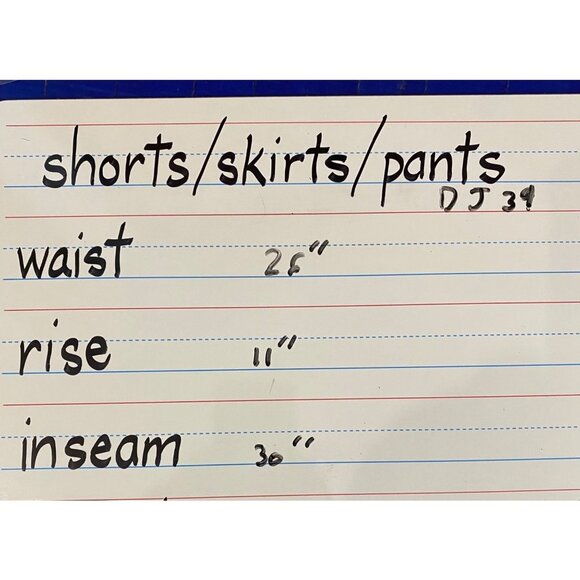 shorts/skirts/pants
DJ 39
waist
rise 11"
inseam 30"